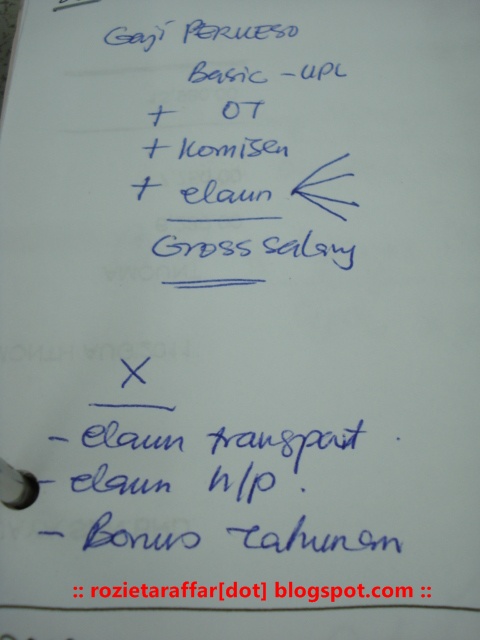 Gaji PERKESO
Basic - UPL
+ OT
+ Komisen
+ elaun
Gross salary
X
- elaun transport.
- elaun h/p.
- Bonus Tahunan
:: rozietaraffar[dot] blogspot.com ::